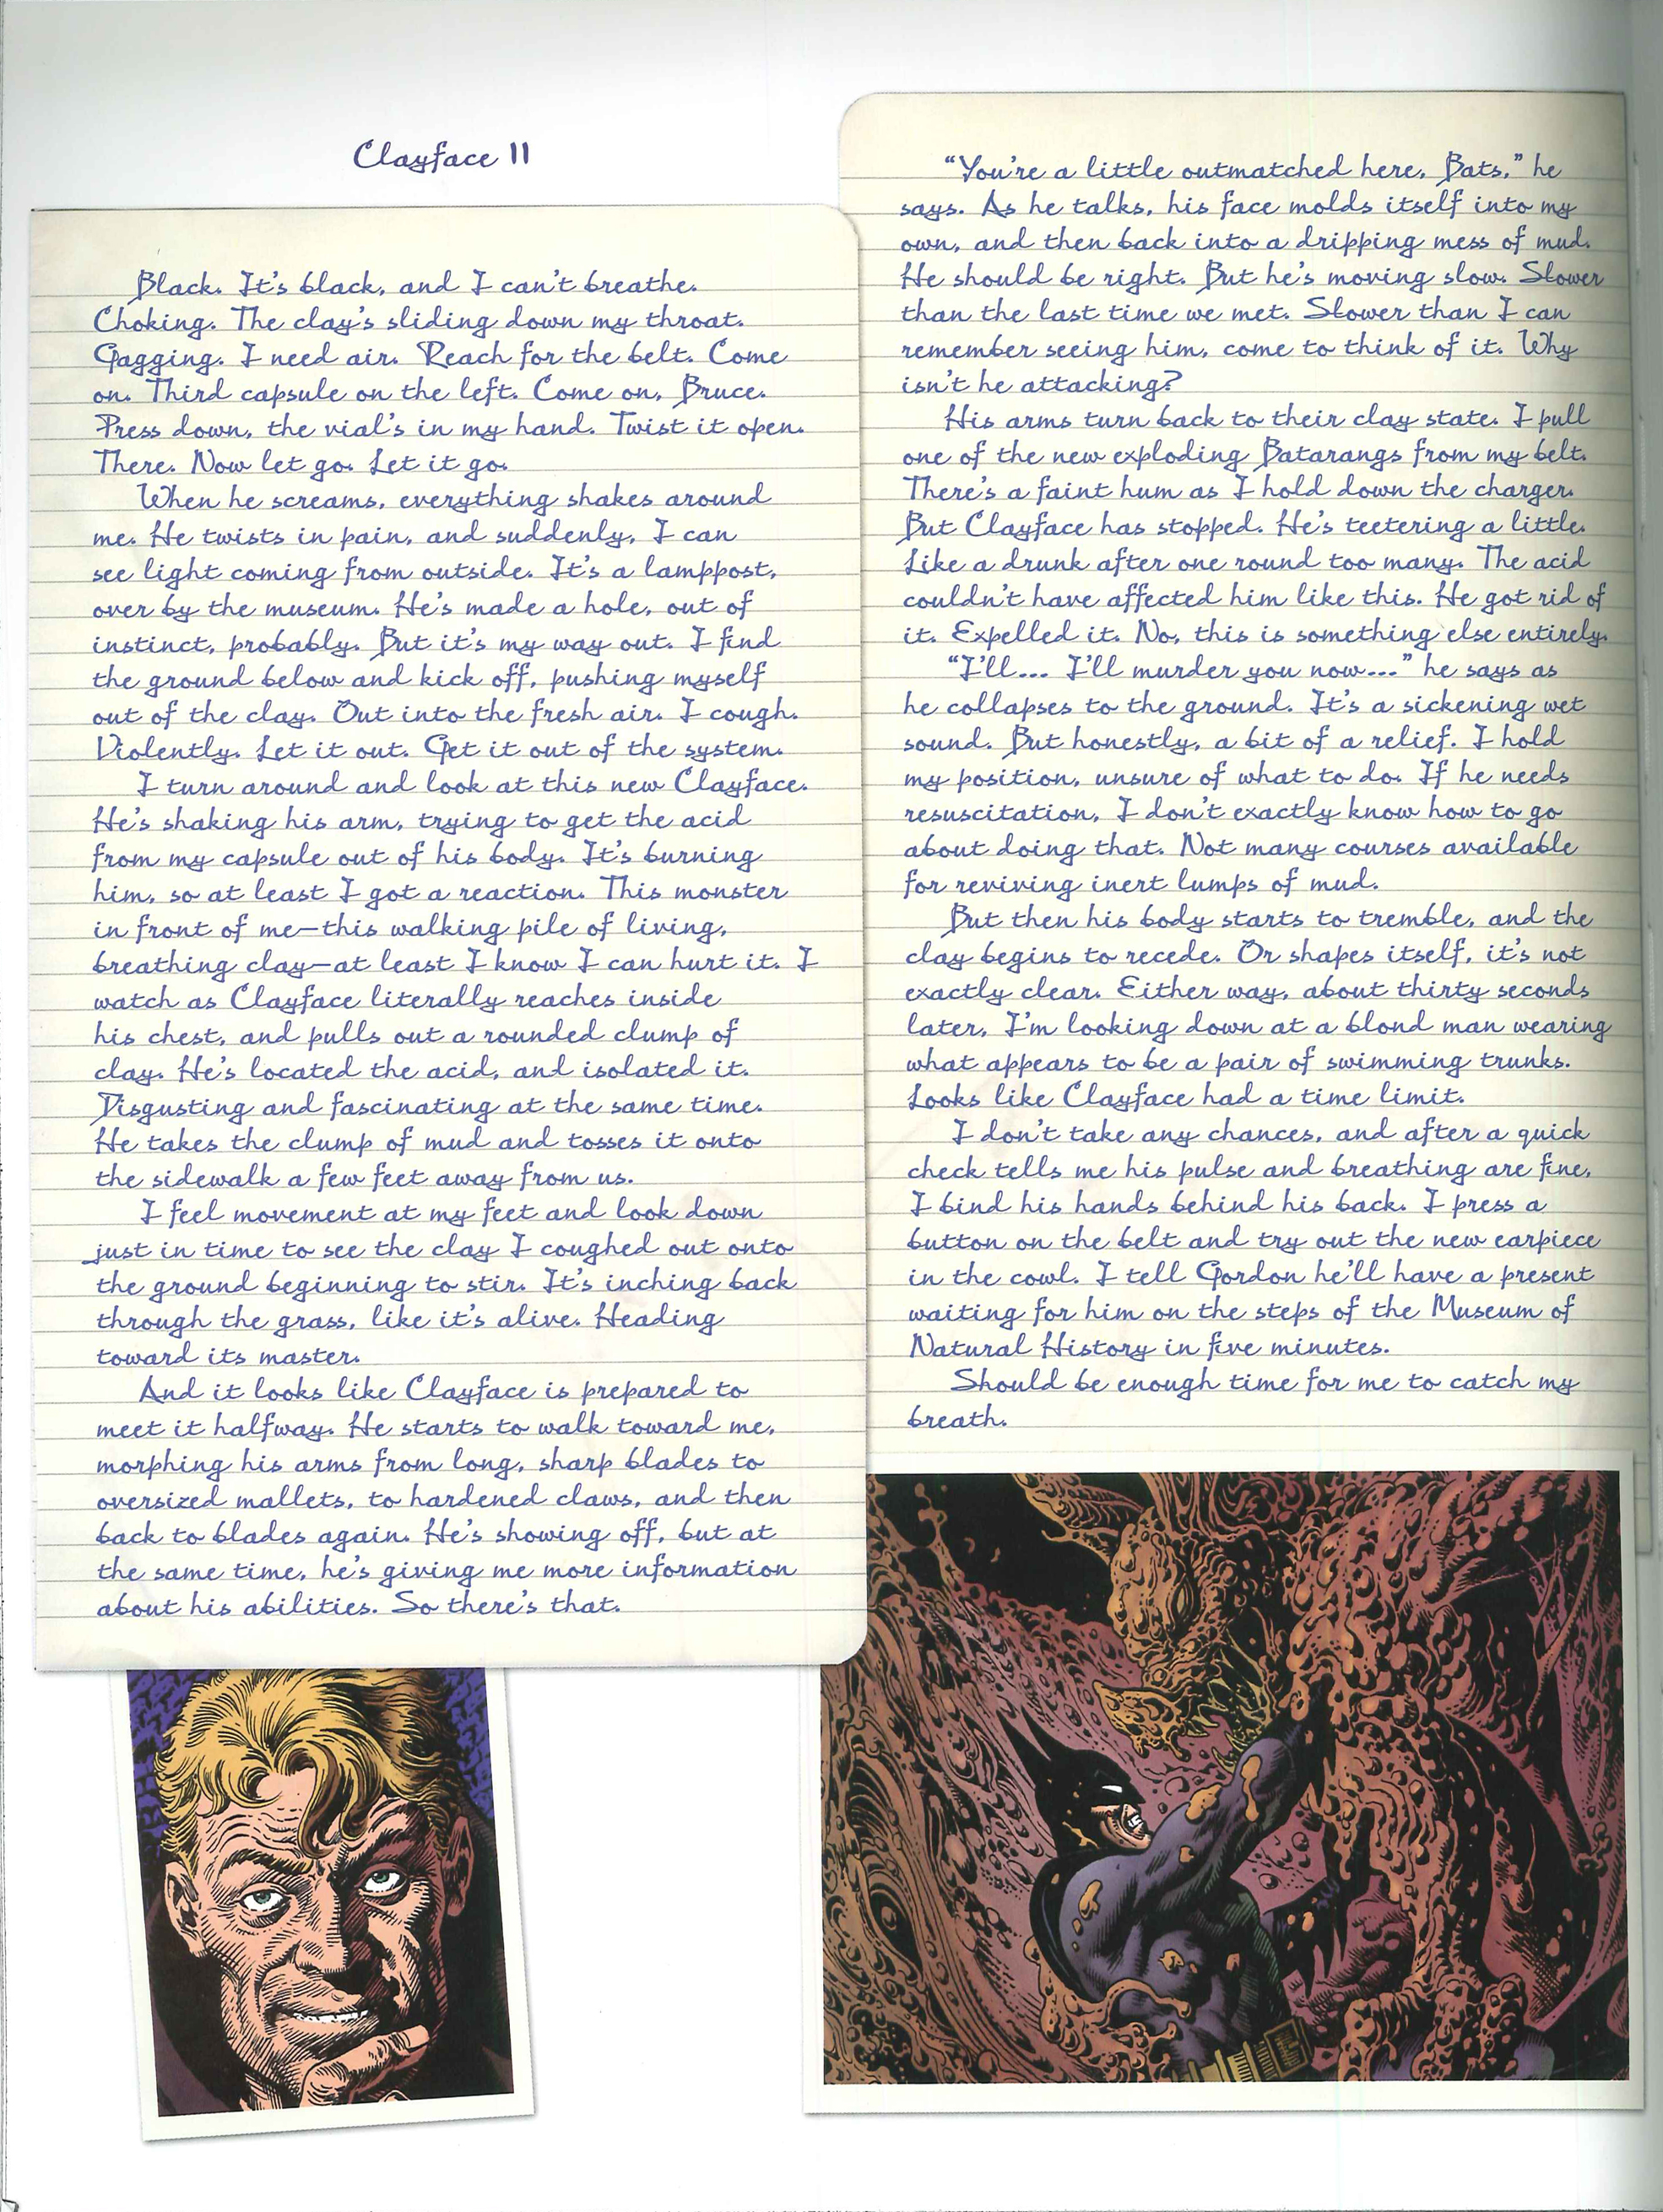 Clayface II
Black. It's black, and I can't breathe.
Choking. The clay's sliding down my throat.
Gagging. I need air. Reach for the belt. Come
on. Third capsule on the left. Come on, Bruce.
Press down, the vial's in my hand. Twist it open.
There. Now let go. Let it go.
When he screams, everything shakes around
me. He twists in pain, and suddenly, I can
see light coming from outside. It's a lamppost,
over by the museum. He's made a hole, out of
instinct, probably. But it's my way out. I find
the ground below and kick off, pushing myself
out of the clay. Out into the fresh air. I cough.
Violently. Let it out. Get it out of the system.
I turn around and look at this new Clayface.
He's shaking his arm, trying to get the acid
from my capsule out of his body. It's burning
him, so at least I got a reaction. This monster
in front of me—this walking pile of living,
breathing clay—at least I know I can hurt it. I
watch as Clayface literally reaches inside
his chest, and pulls out a rounded clump of
clay. He's located the acid, and isolated it.
Disgusting and fascinating at the same time.
He takes the clump of mud and tosses it onto
the sidewalk a few feet away from us.
I feel movement at my feet and look down
just in time to see the clay I coughed out onto
the ground beginning to stir. It's inching back
through the grass, like it's alive. Heading
toward its master.
And it looks like Clayface is prepared to
meet it halfway. He starts to walk toward me,
morphing his arms from long, sharp blades to
oversized mallets, to hardened claws, and then
back to blades again. He's showing off, but at
the same time, he's giving me more information
about his abilities. So there's that.
"You're a little outmatched here, Bats," he
says. As he talks, his face molds itself into my
own, and then back into a dripping mess of mud.
He should be right. But he's moving slow. Slower
than the last time we met. Slower than I can
remember seeing him, come to think of it. Why
isn't he attacking?
His arms turn back to their clay state. I pull
one of the new exploding Batarangs from my belt.
There's a faint hum as I hold down the charger.
But Clayface has stopped. He's teetering a little.
Like a drunk after one round too many. The acid
couldn't have affected him like this. He got rid of
it. Expelled it. No, this is something else entirely.
"I'll... I'll murder you now..." he says as
he collapses to the ground. It's a sickening wet
sound. But honestly, a bit of a relief. I hold
my position, unsure of what to do. If he needs
resuscitation, I don't exactly know how to go
about doing that. Not many courses available
for reviving inert lumps of mud.
But then his body starts to tremble, and the
clay begins to recede. Or shapes itself, it's not
exactly clear. Either way, about thirty seconds
later, I'm looking down at a blond man wearing
what appears to be a pair of swimming trunks.
Looks like Clayface had a time limit.
I don't take any chances, and after a quick
check tells me his pulse and breathing are fine,
I bind his hands behind his back. I press a
button on the belt and try out the new earpiece
in the cowl. I tell Gordon he'll have a present
waiting for him on the steps of the Museum of
Natural History in five minutes.
Should be enough time for me to catch my
breath.